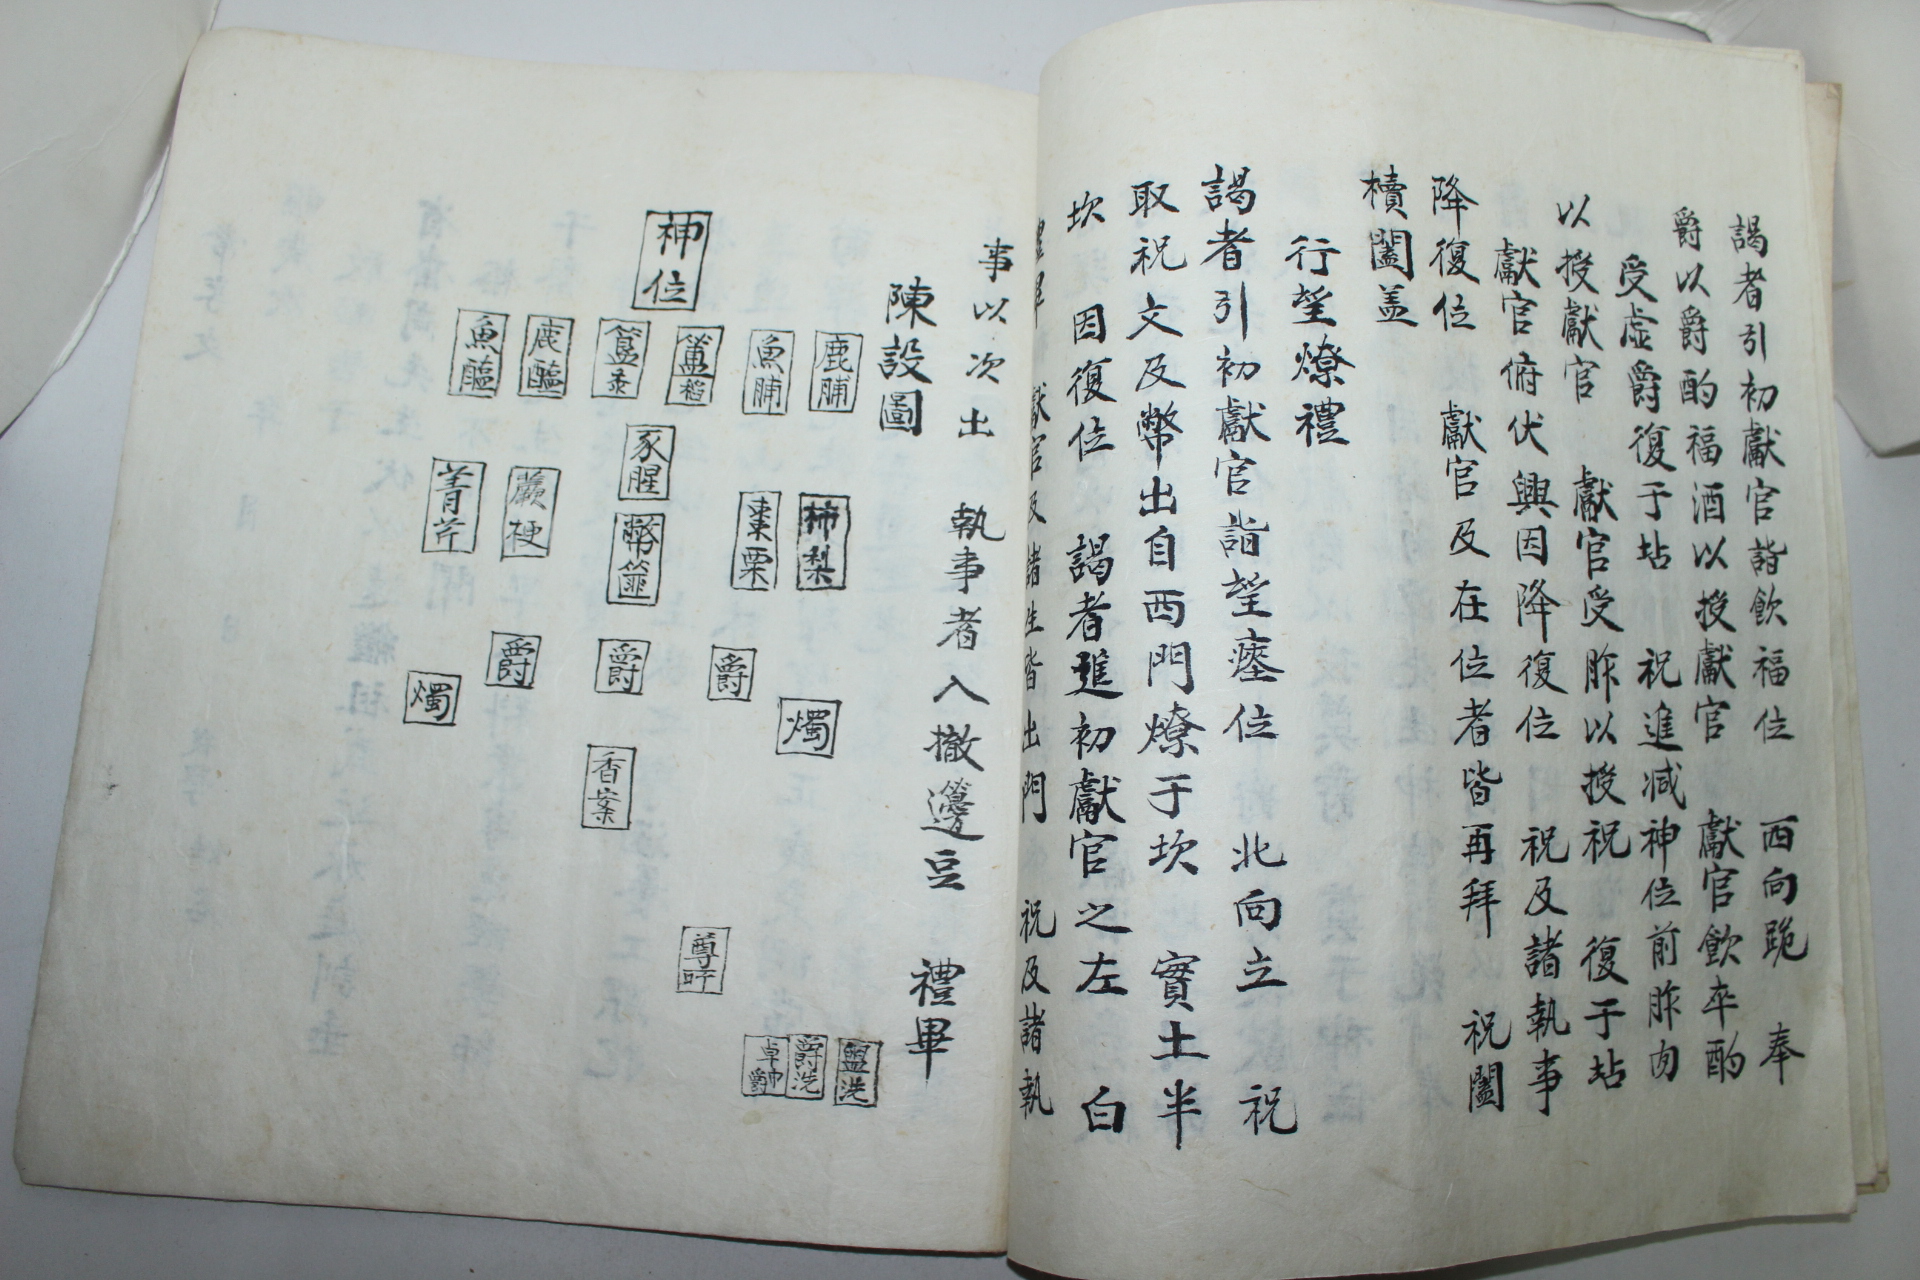 謁者引初獻官詣飮福位 西向跪 奉
爵以爵酌福酒以授獻官 獻官飮卒酌
受虛爵復于坫 祝進减神位前胙肉
以授獻官 獻官受胙以授祝 復于坫
獻官俯伏興因降復位 祝及諸執事
降復位 獻官及在位者皆再拜 祝闔
櫝闔盖
行望燎禮
謁者引初獻官詣望瘞位 北向立 祝
取祝文及幣出自西門燎于坎 實土半
坎 因復位 謁者進初獻官之左 白
禮畢 獻官及諸生皆出門 祝及諸執
事以次出 執事者入撤籩豆 禮畢
陳設圖
神位
鹿脯
魚脯
簠稻
簋黍
鹿醢
魚醢
豕腥
柿梨
棗栗
幣篚
蕨梗
菁芹
爵
爵
爵
燭
燭
香案
尊所
盥洗
爵洗
卓爵巾